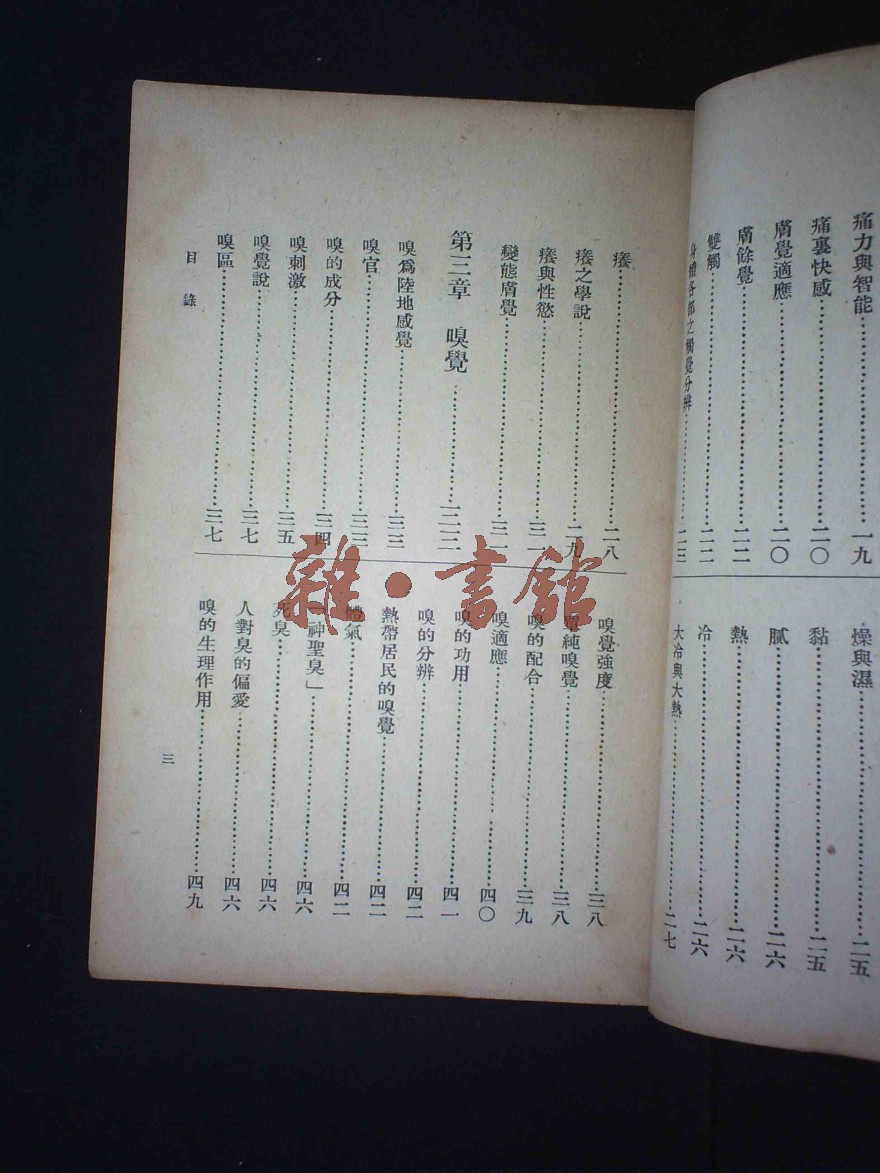 痛力與智能⋯⋯一九
痛裏快感⋯⋯二〇
膚覺適應⋯⋯二〇
膚餘覺⋯⋯二二
雙觸⋯⋯二二
身體各部之觸覺分辨⋯⋯二三
燥與濕⋯⋯二五
黏⋯⋯二五
膩⋯⋯二六
熱⋯⋯二六
冷⋯⋯二六
大冷與大熱⋯⋯二七
癢⋯⋯二八
癢之學說⋯⋯二九
癢與性慾⋯⋯三一
變態膚覺⋯⋯三一
第三章 嗅覺⋯⋯三三
嗅爲陸地感覺⋯⋯三三
嗅官⋯⋯三三
嗅的成分⋯⋯三四
嗅刺激⋯⋯三五
嗅覺說⋯⋯三七
嗅區⋯⋯三七
嗅覺強度⋯⋯三八
單純嗅覺⋯⋯三八
嗅的配合⋯⋯三九
嗅適應⋯⋯四〇
嗅的功用⋯⋯四一
嗅的分辨⋯⋯四二
熱帶居民的嗅覺⋯⋯四二
體氣⋯⋯四二
「神聖臭」⋯⋯四六
死臭⋯⋯四六
人對臭的偏愛⋯⋯四六
嗅的生理作用⋯⋯四九
目錄
三
雜·書館